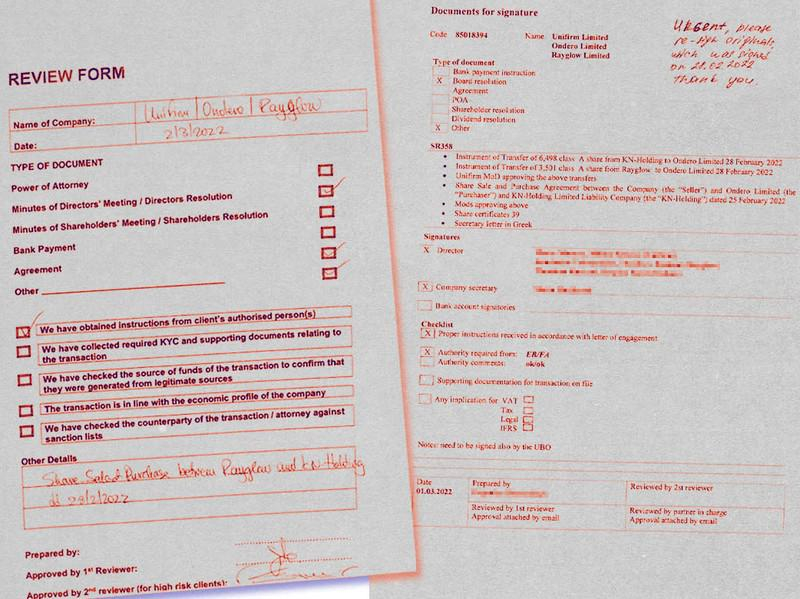 REVIEW FORM
Name of Company: Unifirm | Ondero | Rayglow
Date: 2/3/2022
TYPE OF DOCUMENT
Power of Attorney
Minutes of Directors' Meeting / Directors Resolution
Minutes of Shareholders' Meeting / Shareholders Resolution
Bank Payment
Agreement
Other
We have obtained instructions from client's authorised person(s)
We have collected required KYC and supporting documents relating to
the transaction
We have checked the source of funds of the transaction to confirm that
they were generated from legitimate sources
The transaction is in line with the economic profile of the company
We have checked the counterparty of the transaction / attorney against
sanction lists
Other Details
Share Sale & Purchase between Rayglow and KN-Holding
dd 28/2/2022
Prepared by:
Approved by 1st Reviewer:
Approved by 2nd reviewer (for high risk clients):
Documents for signature
Code 85018394 Name Unifirm Limited
Ondero Limited
Rayglow Limited
Urgent, please
re-sign originals,
which was signed
on 28.02 2022
Thank you.
Type of document
Bank payment instruction
X Board resolution
Agreement
POA
Shareholder resolution
Dividend resolution
X Other
SR358
• Instrument of Transfer of 6,498 class A share from KN-Holding to Ondero Limited 28 February 2022
• Instrument of Transfer of 3,501 class A share from Rayglow to Ondero Limited 28 February 2022
• Unifirm MoD approving the above transfers
• Share Sale and Purchase Agreement between the Company (the "Seller") and Ondero Limited (the
"Purchaser") and KN-Holding Limited Liability Company (the "KN-Holding") dated 25 February 2022
• Mods approving above
• Share certificates 39
• Secretary letter in Greek
Signatures
X Director
X Company secretary
Bank account signatories
Checklist
X Proper instructions received in accordance with letter of engagement
X Authority required from: EB/FA
Authority comments: ok/ok
Supporting documentation for transaction on file
Any implication for VAT
Tax
Legal
IFRS
Notes: need to be signed also by the UBO
Date
01.03.2022
Prepared by
Reviewed by 2st reviewer
Reviewed by 1st reviewer
Approval attached by email
Reviewed by partner in charge
Approval attached by email